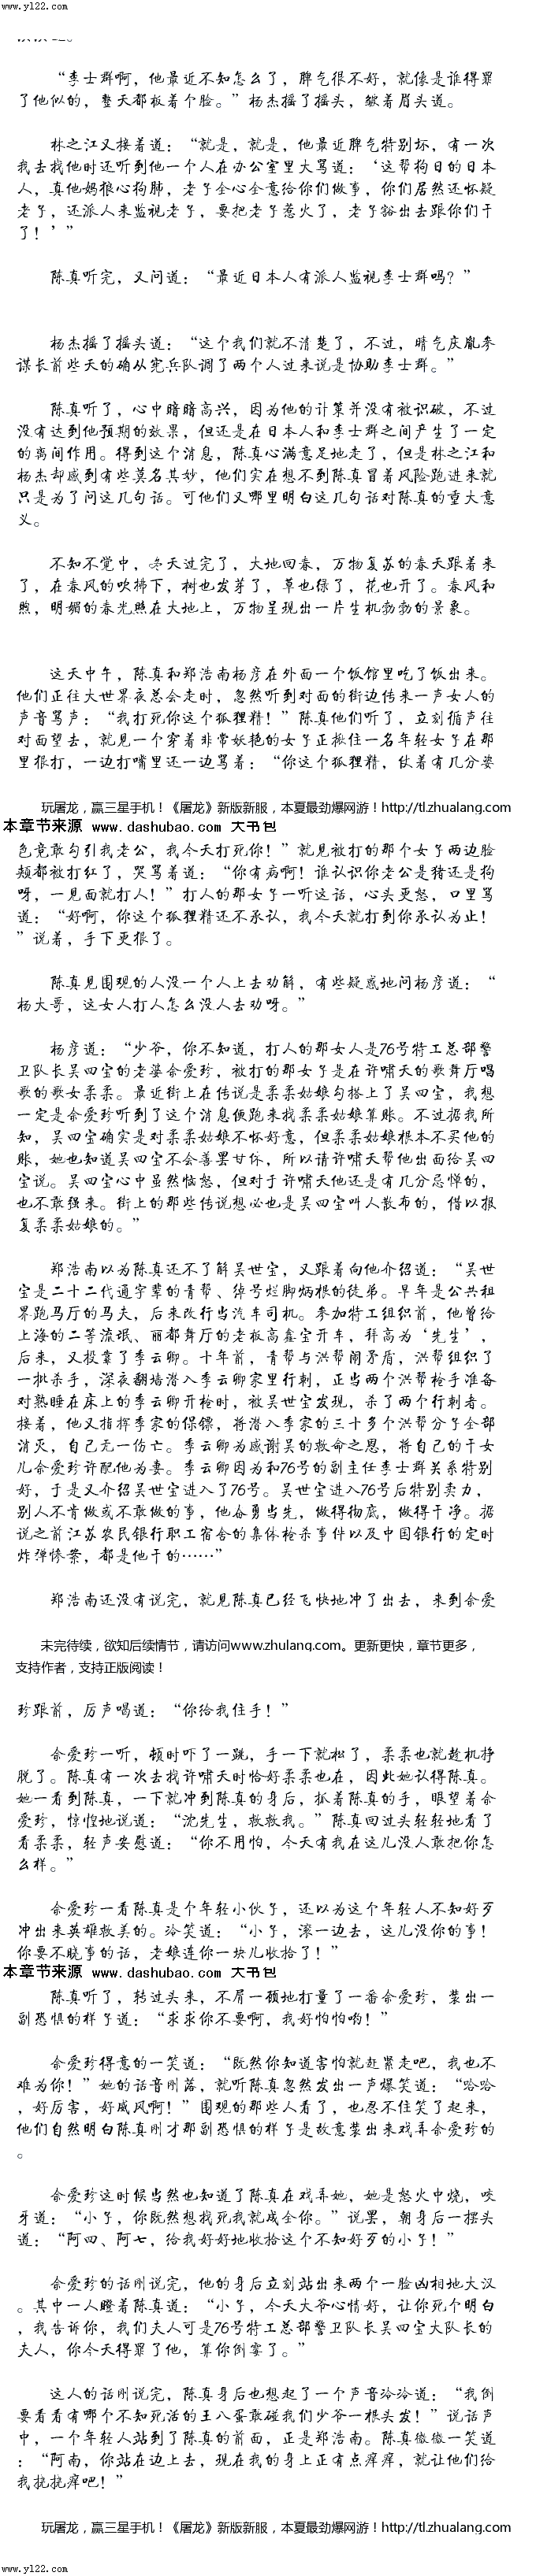 www.yl22.com
“李士群啊，他最近不知怎么了，脾气很不好，就像是谁得罪
了他似的，整天都板着个脸。”杨杰摇了摇头，皱着眉头道。
林之江又接着道：“就是，就是，他最近脾气特别坏，有一次
我去找他时还听到他一个人在办公室里大骂道：‘这帮狗日的日本
人，真他妈狼心狗肺，老子全心全意给你们做事，你们居然还怀疑
老子，还派人来监视老子，要把老子惹火了，老子豁出去跟你们干
了！’”
陈真听完，又问道：“最近日本人有派人监视李士群吗？”
杨杰摇了摇头道：“这个我们就不清楚了，不过，晴气庆胤参
谋长前些天的确从宪兵队调了两个人过来说是协助李士群。”
陈真听了，心中暗暗高兴，因为他的计策并没有被识破，不过
没有达到他预期的效果，但还是在日本人和李士群之间产生了一定
的离间作用。得到这个消息，陈真心满意足地走了，但是林之江和
杨杰却感到有些莫名其妙，他们实在想不到陈真冒着风险跑进来就
只是为了问这几句话。可他们又哪里明白这几句话对陈真的重大意
义。
不知不觉中，冬天过完了，大地回春，万物复苏的春天跟着来
了，在春风的吹拂下，树也发芽了，草也绿了，花也开了。春风和
煦，明媚的春光照在大地上，万物呈现出一片生机勃勃的景象。
这天中午，陈真和郑浩南杨彦在外面一个饭馆里吃了饭出来。
他们正往大世界夜总会走时，忽然听到对面的街边传来一声女人的
声音骂声：“我打死你这个狐狸精！”陈真他们听了，立刻循声往
对面望去，就见一个穿着非常妖艳的女子正揪住一名年轻女子在那
里狠打，一边打嘴里还一边骂着：“你这个狐狸精，仗着有几分姿
玩屠龙，赢三星手机！《屠龙》新版新服，本夏最劲爆网游！http://tl.zhualang.com
本章节来源 www.dashubao.com 大书包
色竟敢勾引我老公，我今天打死你！”就见被打的那个女子两边脸
颊都被打红了，哭骂着道：“你有病啊！谁认识你老公是猪还是狗
呀，一见面就打人！”打人的那女子一听这话，心头更怒，口里骂
道：“好啊，你这个狐狸精还不承认，我今天就打到你承认为止！
”说着，手下更狠了。
陈真见围观的人没一个人上去劝解，有些疑惑地问杨彦道：“
杨大哥，这女人打人怎么没人去劝呀。”
杨彦道：“少爷，你不知道，打人的那女人是76号特工总部警
卫队长吴四宝的老婆佘爱珍，被打的那女子是在许啸天的歌舞厅唱
歌的歌女柔柔。最近街上在传说是柔柔姑娘勾搭上了吴四宝，我想
一定是佘爱珍听到了这个消息便跑来找柔柔姑娘算账。不过据我所
知，吴四宝确实是对柔柔姑娘不怀好意，但柔柔姑娘根本不买他的
账，她也知道吴四宝不会善罢甘休，所以请许啸天帮他出面给吴四
宝说。吴四宝心中虽然恼怒，但对于许啸天他还是有几分忌惮的，
也不敢强来。街上的那些传说想必也是吴四宝叫人散布的，借以报
复柔柔姑娘的。”
郑浩南以为陈真还不了解吴世宝，又跟着向他介绍道：“吴世
宝是二十二代通字辈的青帮、绰号烂脚炳根的徒弟。早年是公共租
界跑马厅的马夫，后来改行当汽车司机。参加特工组织前，他曾给
上海的二等流氓、丽都舞厅的老板高鑫宝开车，拜高为‘先生’，
后来，又投靠了季云卿。十年前，青帮与洪帮闹矛盾，洪帮组织了
一批杀手，深夜翻墙潜入季云卿家里行刺，正当两个洪帮枪手准备
对熟睡在床上的季云卿开枪时，被吴世宝发现，杀了两个行刺者。
接着，他又指挥季家的保镖，将潜入季家的三十多个洪帮分子全部
消灭，自己无一伤亡。季云卿为感谢吴的救命之恩，将自己的干女
儿佘爱珍许配他为妻。季云卿因为和76号的副主任李士群关系特别
好，于是又介绍吴世宝进入了76号。吴世宝进入76号后特别卖力，
别人不肯做或不敢做的事，他奋勇当先，做得彻底，做得干净。据
说之前江苏农民银行职工宿舍的集体枪杀事件以及中国银行的定时
炸弹惨案，都是他干的……”
郑浩南还没有说完，就见陈真已经飞快地冲了出去，来到佘爱
未完待续，欲知后续情节，请访问www.zhulang.com。更新更快，章节更多，
支持作者，支持正版阅读！
珍跟前，厉声喝道：“你给我住手！”
佘爱珍一听，顿时吓了一跳，手一下就松了，柔柔也就趁机挣
脱了。陈真有一次去找许啸天时恰好柔柔也在，因此她认得陈真。
她一看到陈真，一下就冲到陈真的身后，抓着陈真的手，眼望着佘
爱珍，惊惶地说道：“沈先生，救救我。”陈真回过头轻轻地看了
看柔柔，轻声安慰道：“你不用怕，今天有我在这儿没人敢把你怎
么样。”
佘爱珍一看陈真是个年轻小伙子，还以为这个年轻人不知好歹
冲出来英雄救美的。冷笑道：“小子，滚一边去，这儿没你的事！
你要不晓事的话，老娘连你一块儿收拾了！”
本章节来源 www.dashubao.com 大书包
陈真听了，转过头来，不屑一顾地打量了一番佘爱珍，装出一
副恐惧的样子道：“求求你不要啊，我好怕怕哟！”
佘爱珍得意的一笑道：“既然你知道害怕就赶紧走吧，我也不
难为你！”她的话音刚落，就听陈真忽然发出一声爆笑道：“哈哈
，好厉害，好威风啊！”围观的那些人看了，也忍不住笑了起来，
他们自然明白陈真刚才那副恐惧的样子是故意装出来戏弄佘爱珍的
。
佘爱珍这时候当然也知道了陈真在戏弄她，她是怒火中烧，咬
牙道：“小子，你既然想找死我就成全你。”说罢，朝身后一摆头
道：“阿四、阿七，给我好好地收拾这个不知好歹的小子！”
佘爱珍的话刚说完，他的身后立刻站出来两个一脸凶相地大汉
。其中一人瞪着陈真道：“小子，今天大爷心情好，让你死个明白
，我告诉你，我们夫人可是76号特工总部警卫队长吴四宝大队长的
夫人，你今天得罪了他，算你倒霉了。”
这人的话刚说完，陈真身后也想起了一个声音冷冷道：“我倒
要看看有哪个不知死活的王八蛋敢碰我们少爷一根头发！”说话声
中，一个年轻人站到了陈真的前面，正是郑浩南。陈真微微一笑道
：“阿南，你站在边上去，现在我的身上正有点痒痒，就让他们给
我挠挠痒吧！”
玩屠龙，赢三星手机！《屠龙》新版新服，本夏最劲爆网游！http://tl.zhualang.com
www.yl22.com